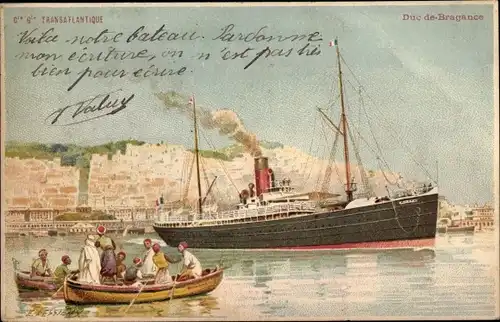 Cie Gle TRANSATLANTIQUE
Duc-de-Bragance
Voila notre bateau. Pardonne
mon écriture, on n'est pas très
bien pour écrire.